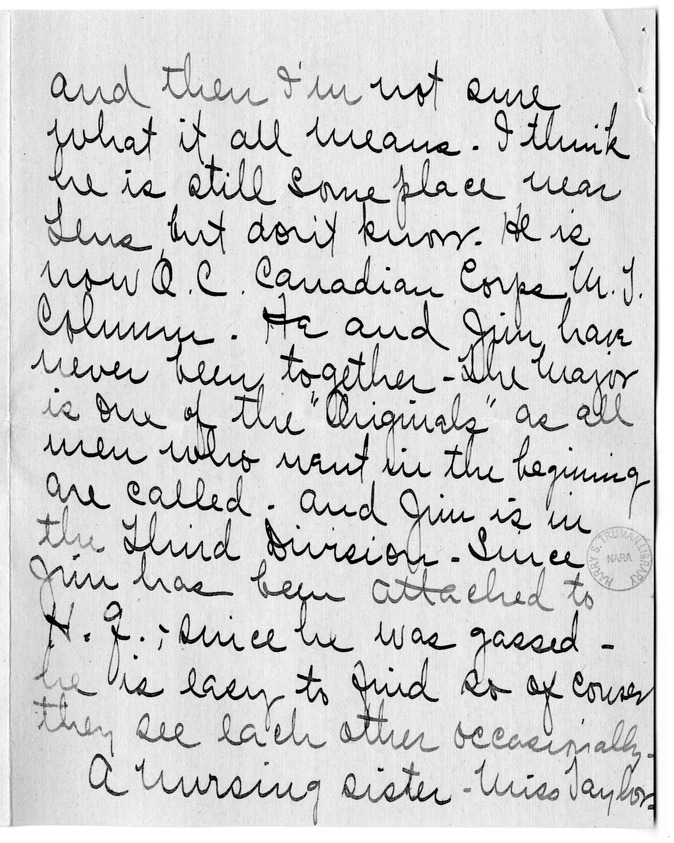 and then I'm not sure
what it all means. I think
he is still someplace near
Lens, but don't know. He is
now O.C. Canadian Corps M.T.
Column. He and Jim have
never been together - The Major
is one of the "Originals" as all
men who went in the begining
are called. And Jim is in
the Third Division - Since
Jim has been attached to
H.Q., since he was gassed -
he is easy to find so of couser
they see each other occasionally.
A nursing sister - Miss Taylor -
HARRY S. TRUMAN LIBRARY
NARA